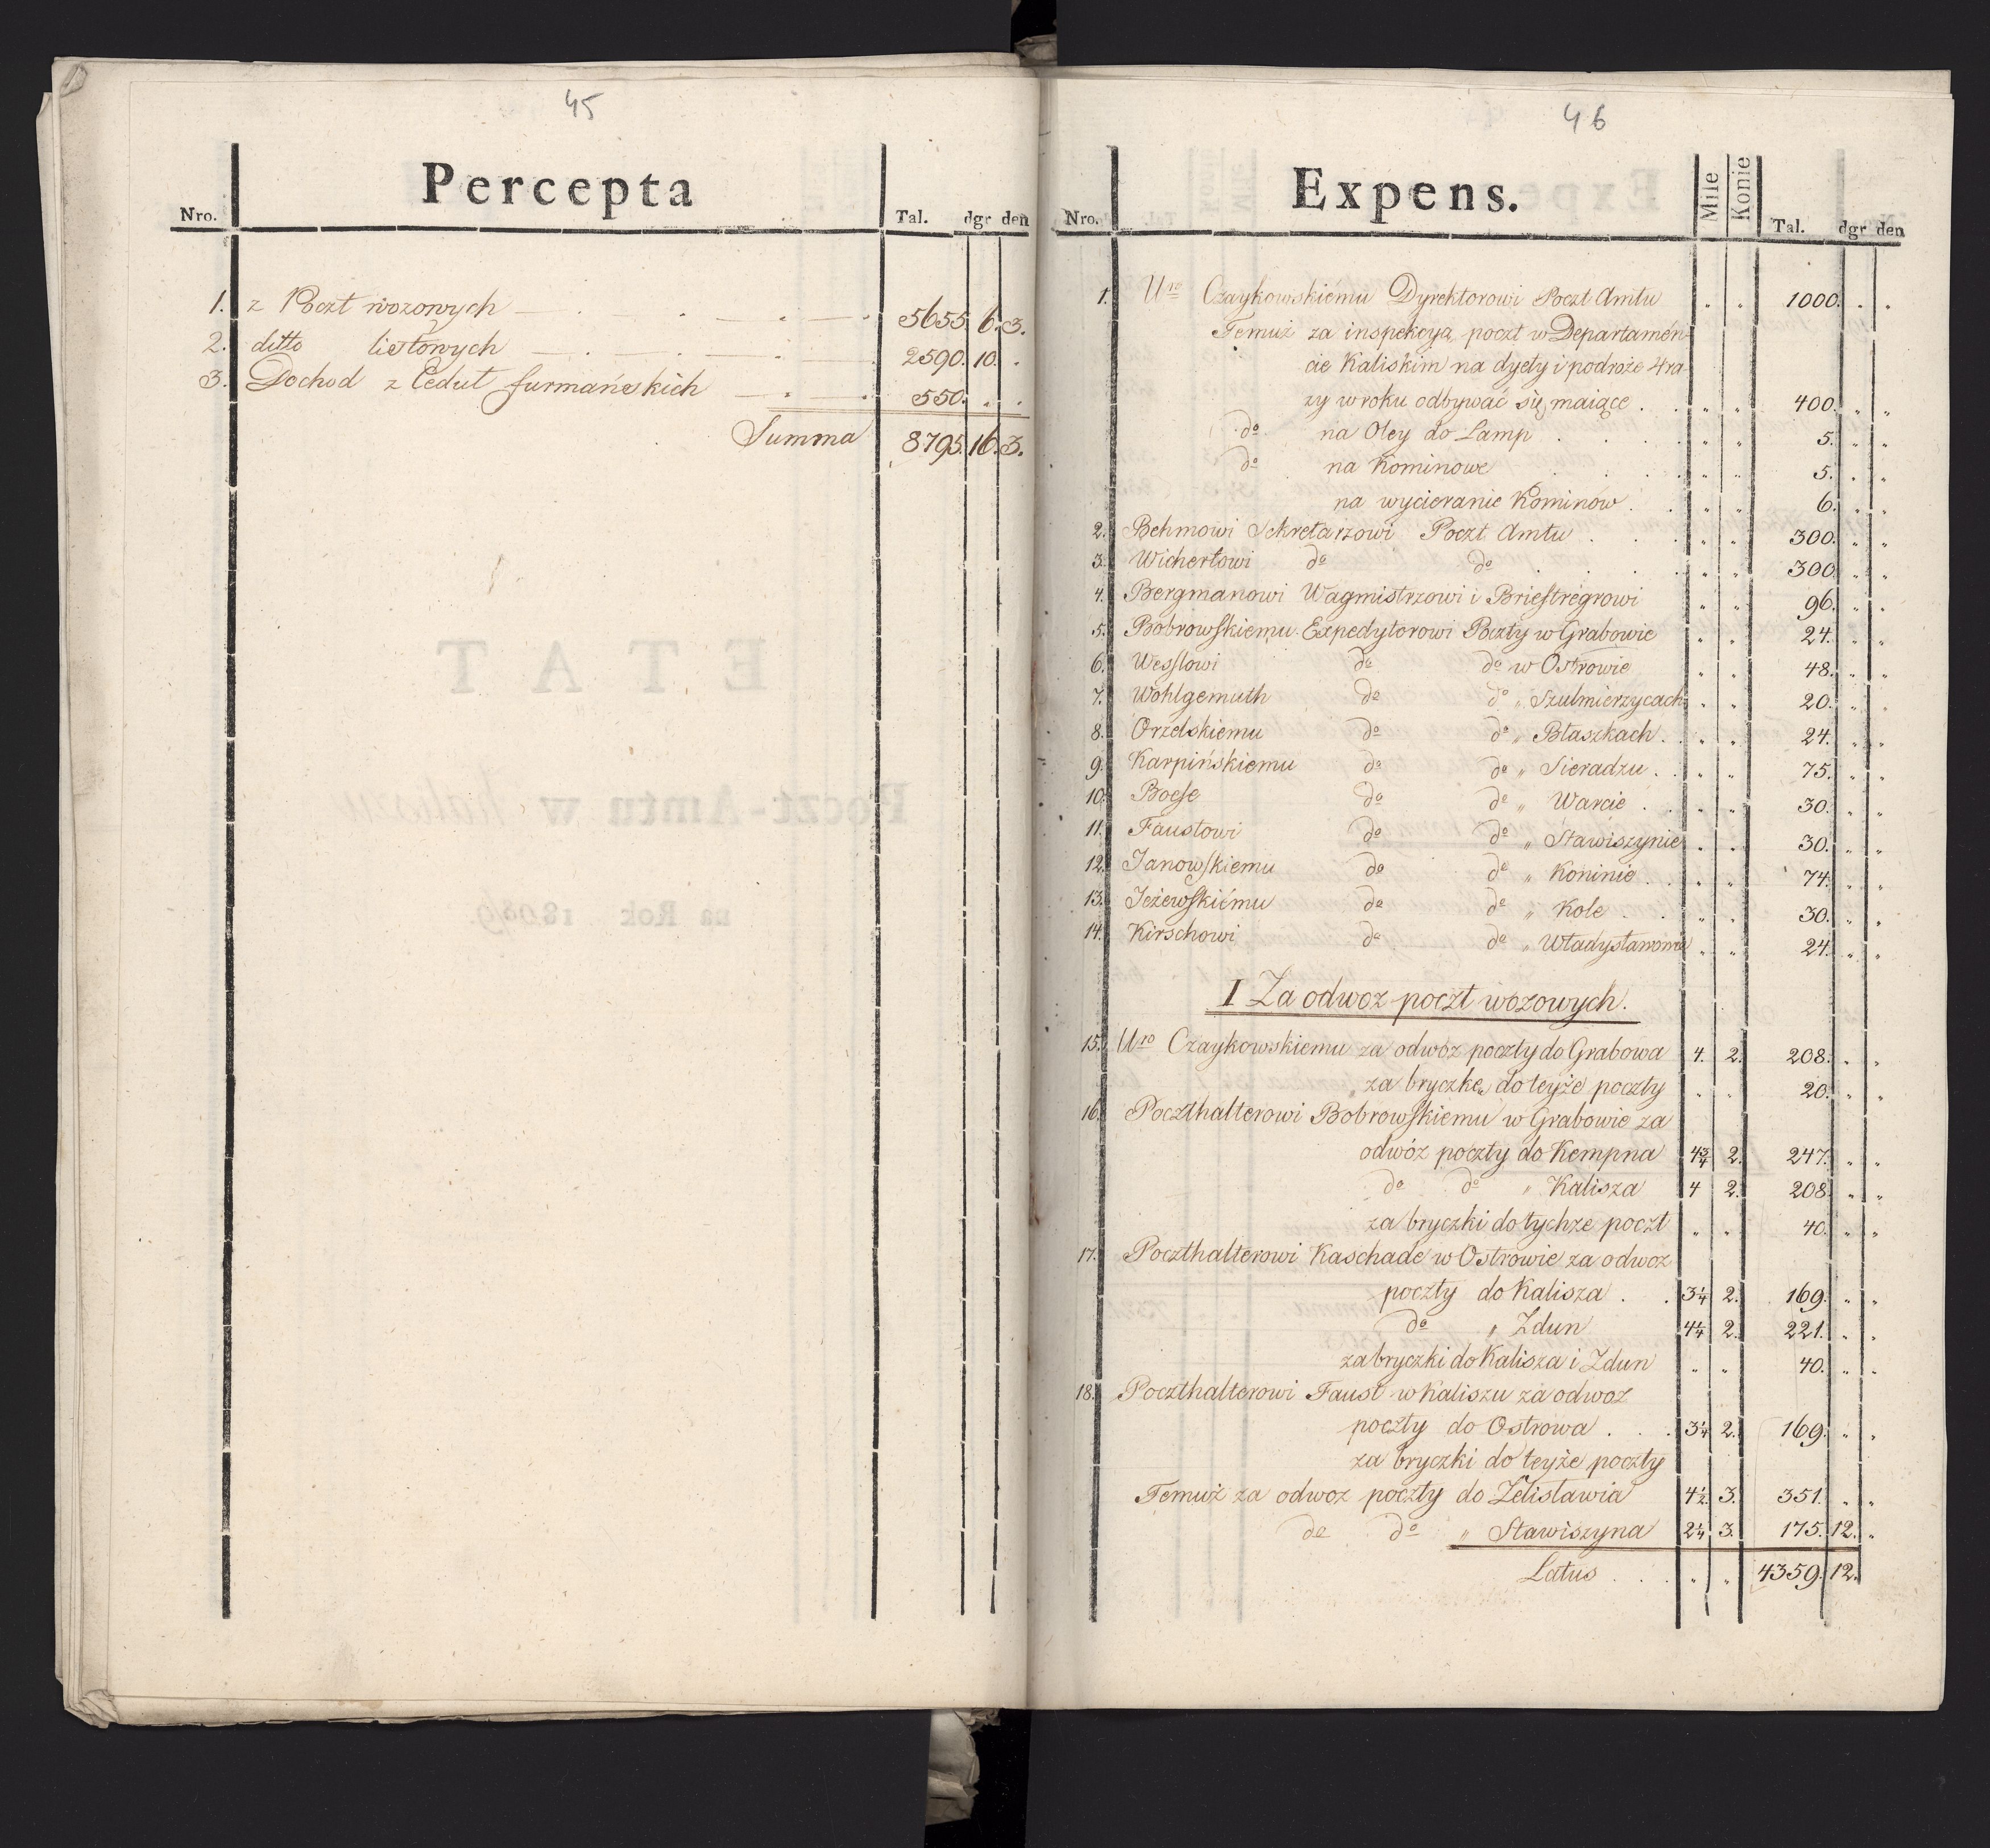 45
Percepta
Nro. Tal. dgr den
1. z Poczt wozowych 5655. 6. 3.
2. ditto listowych 2590. 10. .
3. Dochod z Cedut furmańskich 550. . .
Summa 8795. 16. 3.
46
Expens.
Nro. Mile Konie Tal. dgr den
1. Uro Czaykowskiemu Dyrektorowi Poczt Amtu " " 1000. " "
Temuż za inspekcyą poczt w Departamen-
cie Kaliskim na dyety i podroże 4 ra-
zy w roku odbywać się maiące . . " " 400. " "
do na Oley do Lamp . . . " " 5. " "
do na Kominowe . . . " " 5. " "
na wycieranie Kominow . . " " 6. " "
2. Behmowi Sekretarzowi Poczt Amtu . . . " " 300. " "
3. Wichertowi do do . . . " " 300. " "
4. Bergmanowi Wagmistrzowi i Brieftregrowi " " 96. " "
5. Bobrowskiemu Expedytorowi Poczty w Grabowie " " 24. " "
6. Wesslowi do do w Ostrowie " " 48. " "
7. Wohlgemuth do do " Szulmierzycach " " 20. " "
8. Orzelskiemu do do " Błaszkach . " " 24. " "
9. Karpińskiemu do do " Sieradzu . . " " 75. " "
10. Boese do do " Warcie . " " 30. " "
11. Faustowi do do " Stawiszynie " " 30. " "
12. Janowskiemu do do " Koninie . . " " 74. " "
13. Jeżewskiemu do do " Kole . . " " 30. " "
14. Kirschowi do do " Władysławowie " " 24. " "
I Za odwoz poczt wozowych.
15. Uro Czaykowskiemu za odwoz poczty do Grabowa 4. 2. 208. " "
za bryczkę do teyże poczty " " 20. " "
16. Poczthalterowi Bobrowskiemu w Grabowie za
odwóz poczty do Kempna 4¾ 2. 247. " "
do do " Kalisza 4 2. 208. " "
za bryczki do tychże poczt " " 40. " "
17. Poczthalterowi Kaschade w Ostrowie za odwoz
poczty do Kalisza . . 3¼ 2. 169. " "
do " Zdun 4¼ 2. 221. " "
za bryczki do Kalisza i Zdun " " 40. " "
18. Poczthalterowi Faust w Kaliszu za odwoz
poczty do Ostrowa . . . 3¼ 2. 169. " "
za bryczki do teyże poczty
Temuż za odwoz poczty do Żelisławia 4½ 3. 351. " "
do do " Stawiszyna 2¼ 3. 175. 12. "
Latus . . . " " 4359. 12.